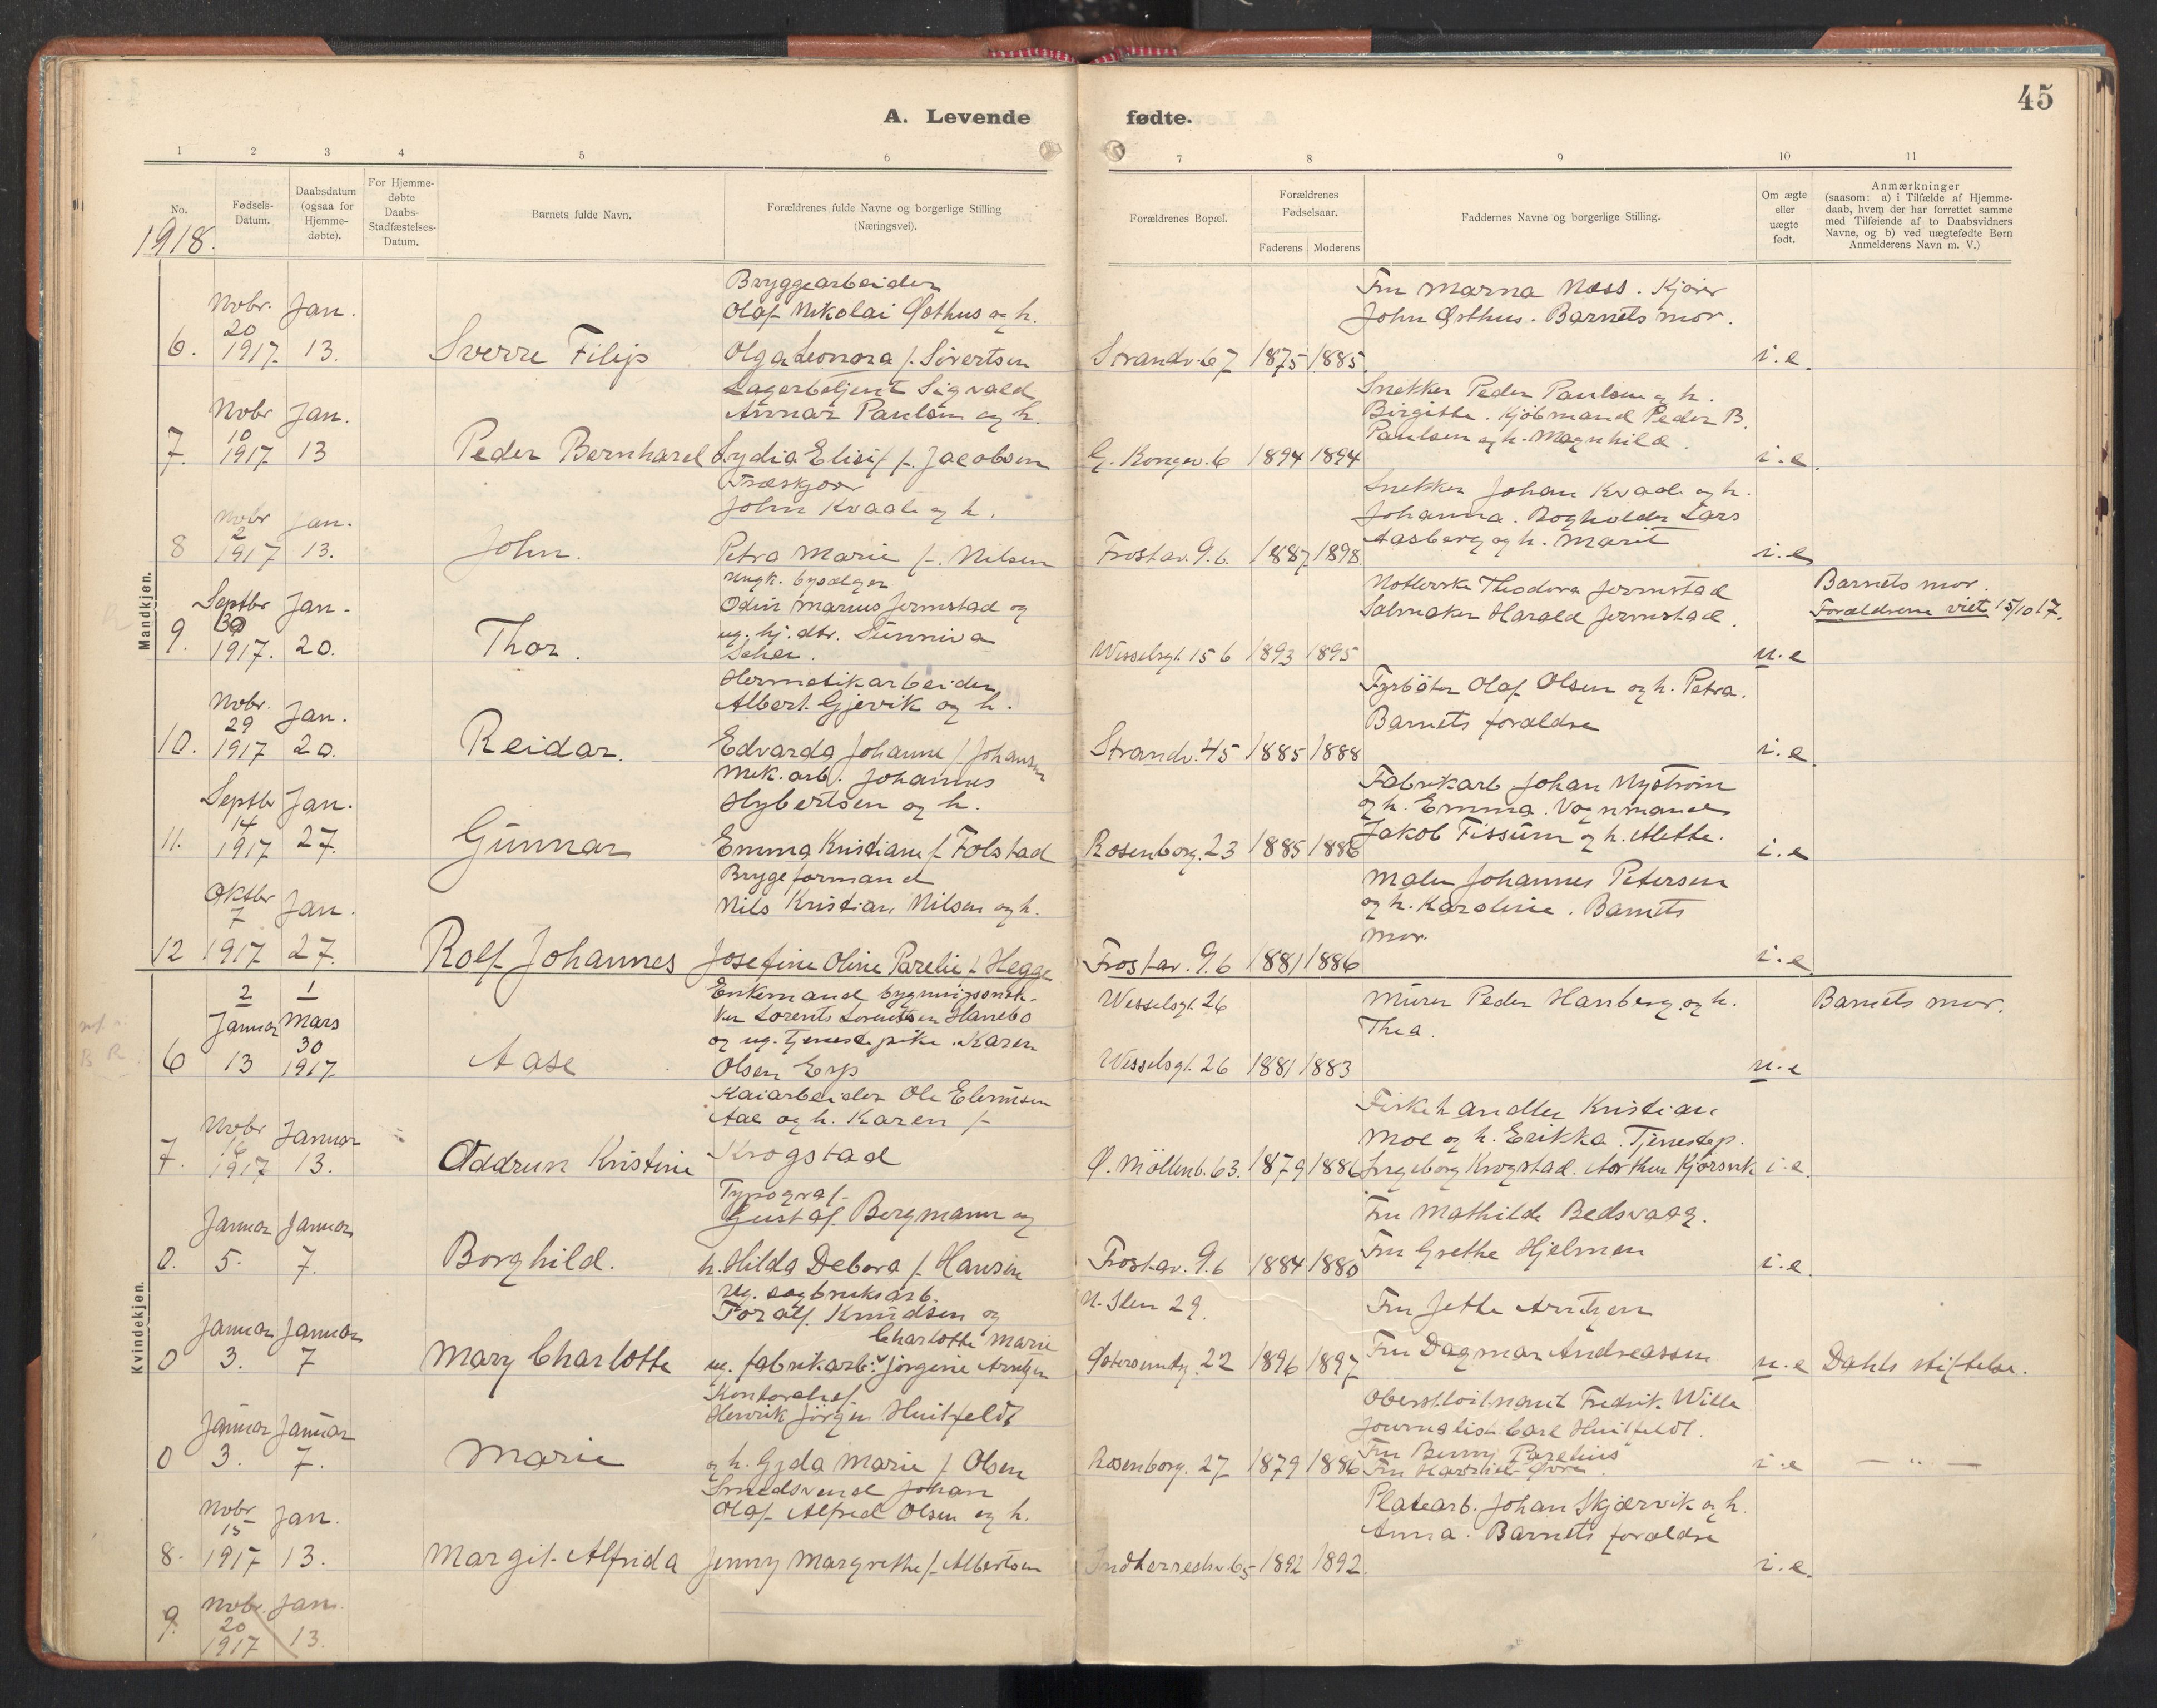 45
A. Levende fødte.
1 2 3 4 5 6 7 8 9 10 11
No.
Fødsels-
Datum.
Daabsdatum
(ogsaa for
Hjemme-
døbte).
For Hjemme-
døbte
Daabs-
Stadfæstelses-
Datum.
Barnets fulde Navn.
Forældrenes fulde Navne og borgerlige Stilling
(Næringsvei).
Forældrenes Bopæl.
Forældrenes
Fødselsaar.
Faderens Moderens
Faddernes Navne og borgerlige Stilling.
Om ægte
eller
uægte
født.
Anmærkninger
(saasom: a) i Tilfælde af Hjemme-
daab, hvem der har forrettet samme
med Tilføiende af to Daabsvidners
Navne, og b) ved uægtefødte Børn
Anmelderens Navn m. V.)
1918.
Mandkjøn.
Bryggearbeider
Nobr. Jan. Olaf Nikolai Østhus og h.
20
6. 1917 13. Sverre Filip Olga Leonora f. Sivertsen
Strandv. 67 1875 1885
Fru Marna Næss. Kjører
John Østhus. Barnets mor.
i.e.
Lagerbetjent Sigvald
Nobr Jan. Annar Paulsen og h.
10
7. 1917 13 Peder Bernhard Lydia Elisif f. Jacobsen
G. Kongev. 6 1894 1894
Snekker Peder Paulsen og h.
Birgitte. Kjøbmand Peder B.
Paulsen og h. Magnhild.
i.e.
Træskjær
Nobr Jan. John Kvaale og h.
2
8 1917 13. John. Petra Marie f. Nilsen
Frostav. 9.6. 1887 1898
Snekker Johan Kvaale og h.
Johanna. Bogholder Lars
Aasberg og h. Marit
i.e.
ungk. bysælger
Septbr Jan. Odin Marius Jermstad og
30 ug. hj. dtr. Sunniva
9. 1917. 20. Thor.
Wesselsgt. 15 b 1893 1895
Theodora Jermstad
Salmaker Harald Jermstad.
u.e
Barnets mor.
Forældrene viet 15/10 17.
Hermetikarbeider
Nobr. Jan. Albert Gjevik og h.
29
10. 1917 20. Reidar. Edvarda Johanne f. Johansen
Strandv. 45 1885 1888
Fyrbøter Olaf Olsen og h. Petra.
Barnets forældre
i.e.
Mek. arb. Johannes
Septbr Jan. Hybertsen og h.
14
11. 1917 27. Gunnar Emma Kristiane f. Folstad
Rosenborg. 23 1885 1886
Fabrikarb Johan Nystrøm
og h. Emma. Vognmand
Jakob Fissum og h. Alette.
i.e
Bryggeformand
Oktbr Jan. Nils Kristian Nilsen og h.
7
12 1917 27. Rolf Johannes Josefine Oline Parelie f. Hegge
Frostav. 9.6 1881 1886
Maler Johannes Petersen
og h. Karoline. Barnets
mor.
i.e.
Kvindekjøn.
2 1 Enkemand bygningssnek-
Januar Mars ker Lorents Lorentsen Hanebo
30 og ug. tjenestepike Karen
6 13 1917 Aase Olsen Erp
Wesselsgt. 26
Wesselsgt. 26 1881 1883
Murer Peder Hanberg og h.
Thea.
u.e
Barnets mor.
Kaiarbeider Ole
Nobr Januar Aae og h. Karen f.
7. 1917 13. Oddrun Kristine Krogstad
Ø. Møllenb. 63. 1879 1886
Fiskehandler Kristian
Moe og h. Erikka. Tjenestep.
Ingeborg Krogstad. Arthur Kjørsvik
i.e.
Typograf
Januar Januar Gustaf Bergmann og
0. 5. 7. Borghild. h. Hilda Debora f. Hansen
Frostav. 9.6 1884 1880
Fru Mathilde Bedsvaag.
Fru Grethe Hjelmen
i.e.
ug. sagbruksarb.
Januar Januar Toralf Knudsen og
Charlotte Marie
0 3. 7 Mary Charlotte ug. fabrikarb. Jørgine Arntzen
N. Ilen 29.
22 1896 1897
Fru Jette Arntzen
Fru Dagmar Andreassen
u.e
Dahls stiftelse.
Kontorchef
Januar Januar Henrik Jörgen Huitfeldt
0 3. 7. Marie og h. Gyda Marie f. Olsen
Rosenborg. 27 1879 1886
Oberstloitnant Fredrik Wille
Journalist Carl Huitfeldt.
Fru Benny Parelius
i.e
— " —
Smedsvend Johan
Nobr Jan. Olaf Alfred Olsen og h.
15
8. 1917 13. Margit Alfrida Jenny Margrethe f. Albertsen
Indherredsv. 65 1892 1892
Platearb. Johan Skjærvik og h.
Anna. Barnets forældre
i.e.
Nobr. Jan.
20
9. 1917 13.